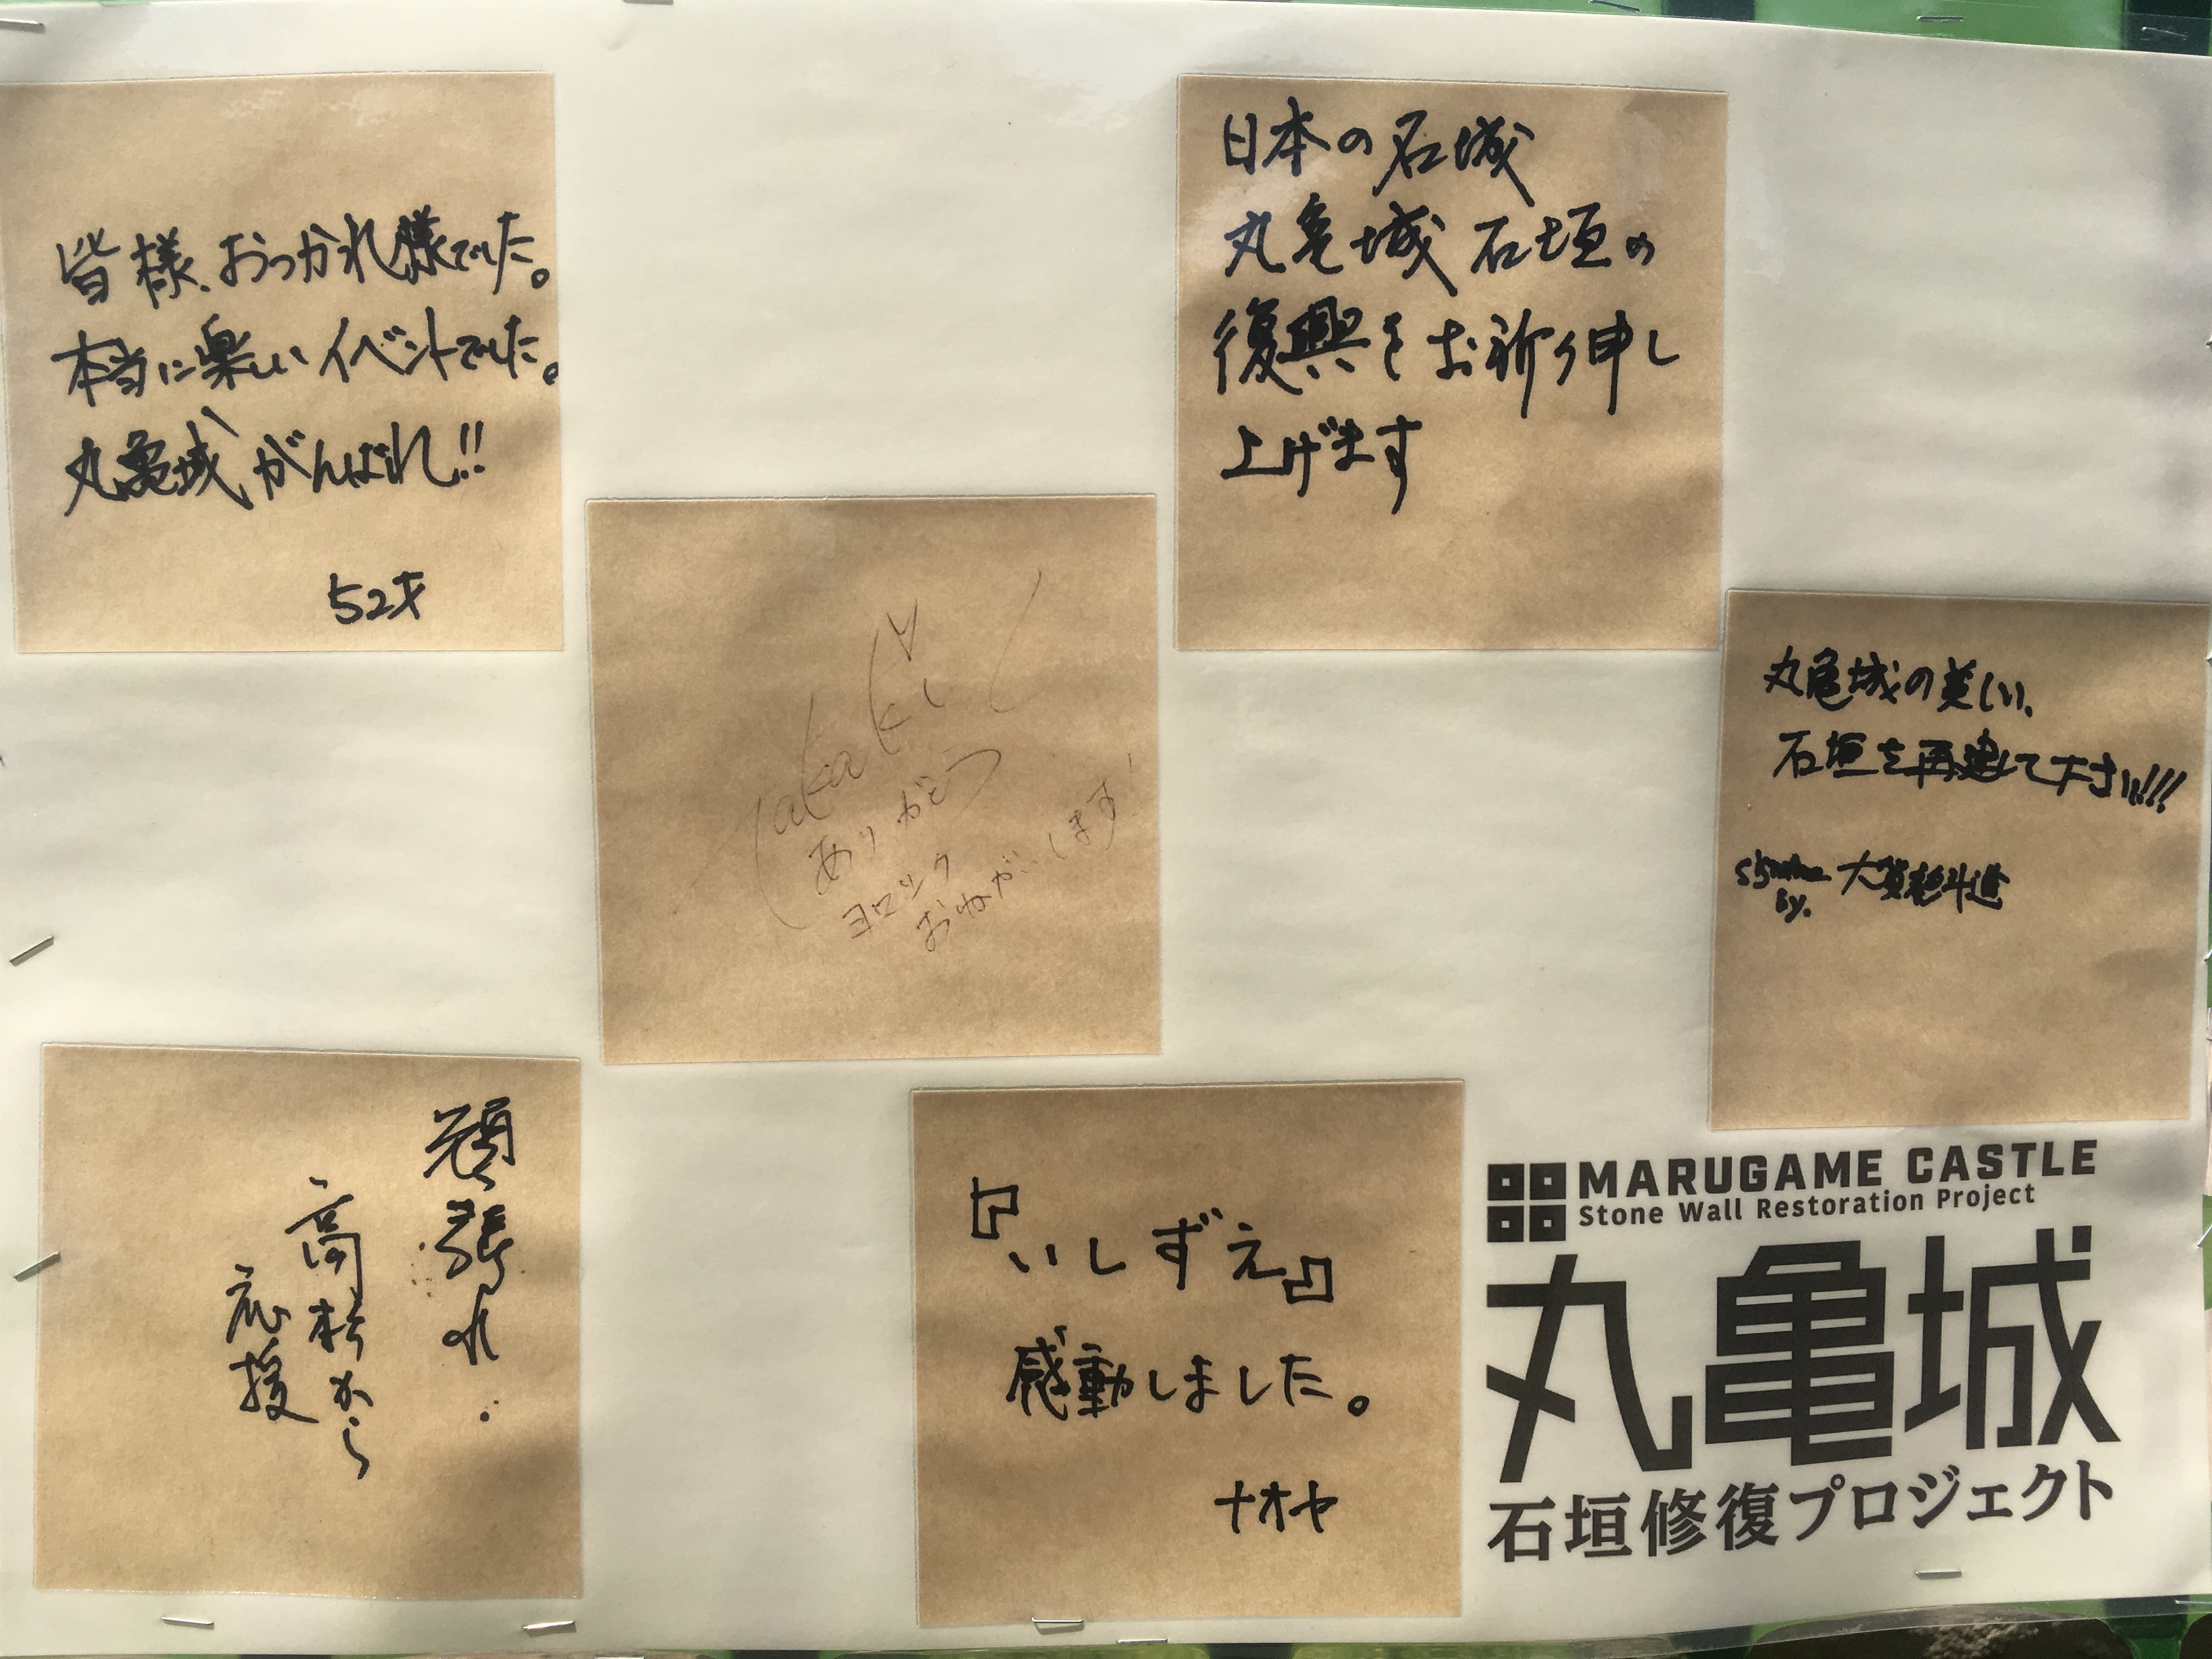 皆様、おつかれ様でした。
本当に楽しいイベントでした。
丸亀城がんばれ!!
52才
日本の石城
丸亀城石垣の
復興をお祈り申し
上げます
Takaki
ありがとう
ヨロシク
おねがいします!
丸亀城の美しい、
石垣を再建して下さい!!!
by.
頑張れ
高松から
応援
『いしずえ』
感動しました。
ナオヤ
MARUGAME CASTLE
Stone Wall Restoration Project
丸亀城
石垣修復プロジェクト